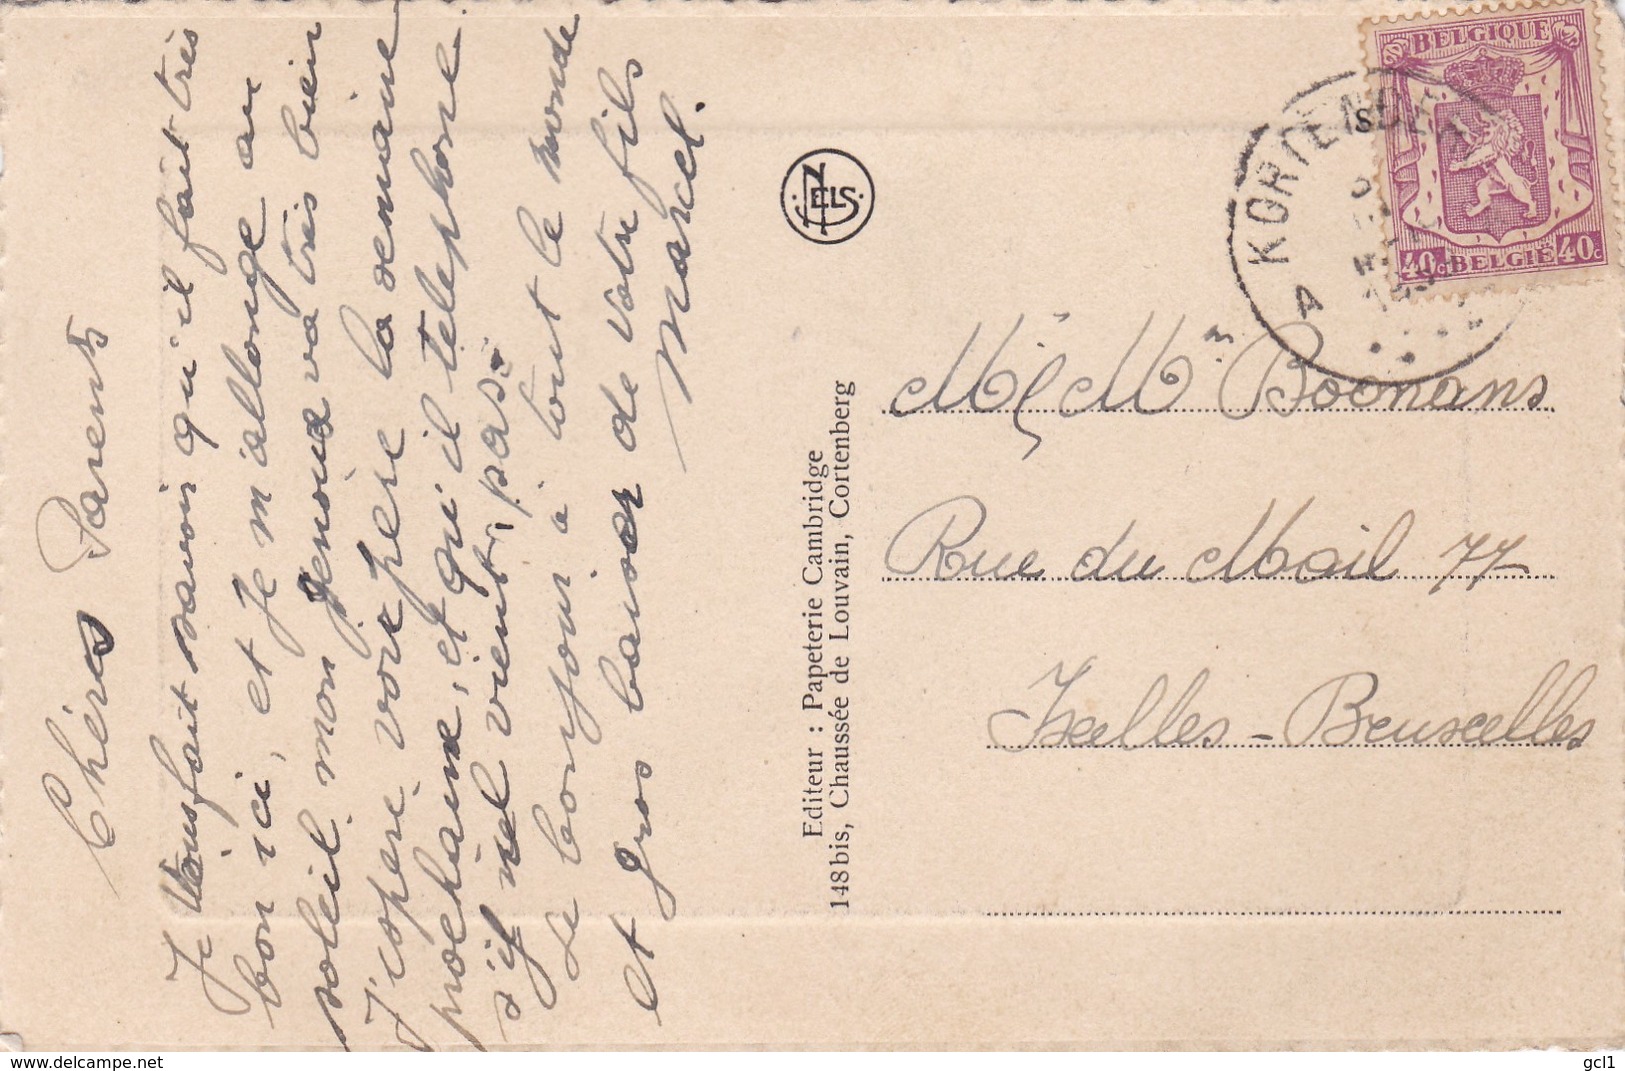 Chères Parents
Je vous fait savoir qu'il fait très
bon ici, et je m'allonge au
soleil mon genoux va très bien
J'espère voir père la semaine
prochaine, et qu'il telephone
s'il vient pas.
Le bonjour à tout le monde
et gros baiser de votre fils
Marcel.
NELS
Editeur : Papeterie Cambridge
148bis, Chaussée de Louvain, Cortenberg
BELGIQUE
40c BELGIË 40c
KORTENBE
A
M et Mme Boonans
Rue du Mail 77
Ixelles - Bruxelles
www.delcampe.net
gcl1